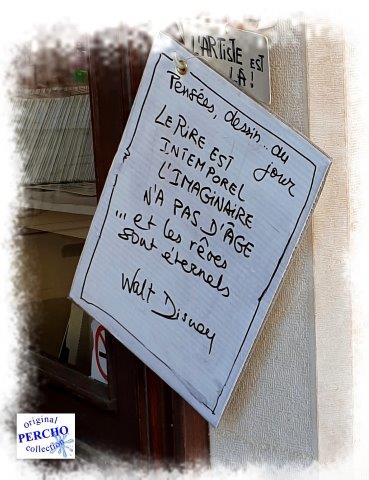 L'ARTISTE EST
LÀ!
Pensées, dessin... du
jour
LE RIRE EST
INTEMPOREL
L'IMAGINAIRE
N'A PAS D'ÂGE
... et les rêves
sont éternels
Walt Disney
original
PERCHO
collection